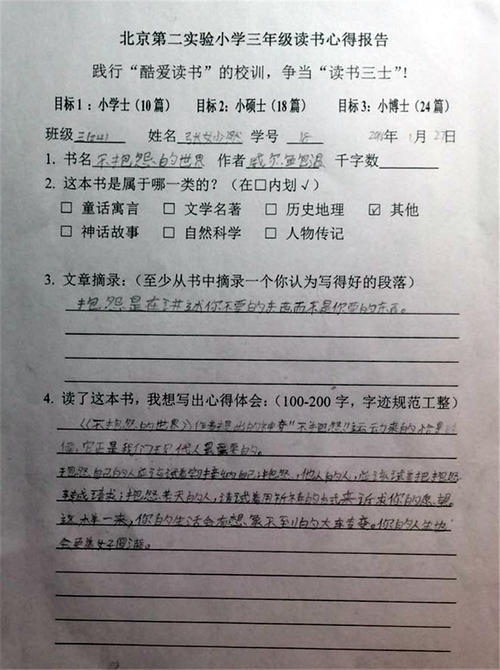 北京第二实验小学三年级读书心得报告
践行“酷爱读书”的校训，争当“读书三士”！
目标1：小学士(10篇) 目标2：小硕士(18篇) 目标3：小博士(24篇)
班级三(4) 姓名 学号 年1月27日
1. 书名不抱怨的世界 作者威尔 鲍温 千字数
2. 这本书是属于哪一类的？（在□内划√）
□ 童话寓言 □ 文学名著 □ 历史地理 ☑ 其他
□ 神话故事 □ 自然科学 □ 人物传记
3. 文章摘录：（至少从书中摘录一个你认为写得好的段落）
抱怨是在讲述你不要的东西而不是你要的东西。
4. 读了这本书，我想写出心得体会：(100-200 字，字迹规范工整)
《不抱怨的世界》作者提出的神奇“不抱怨”运动来的恰是时
候，它正是我们现代人最需要的。
抱怨自己的人应该试着学接纳自己；抱怨他人的人，应该试着把抱怨
转成请求；抱怨老天的人，请试着用祈祷的方式来诉求你的愿望。
这样一来，你的生活会有想象不到的大转变。你的人生也
会更美好圆满。